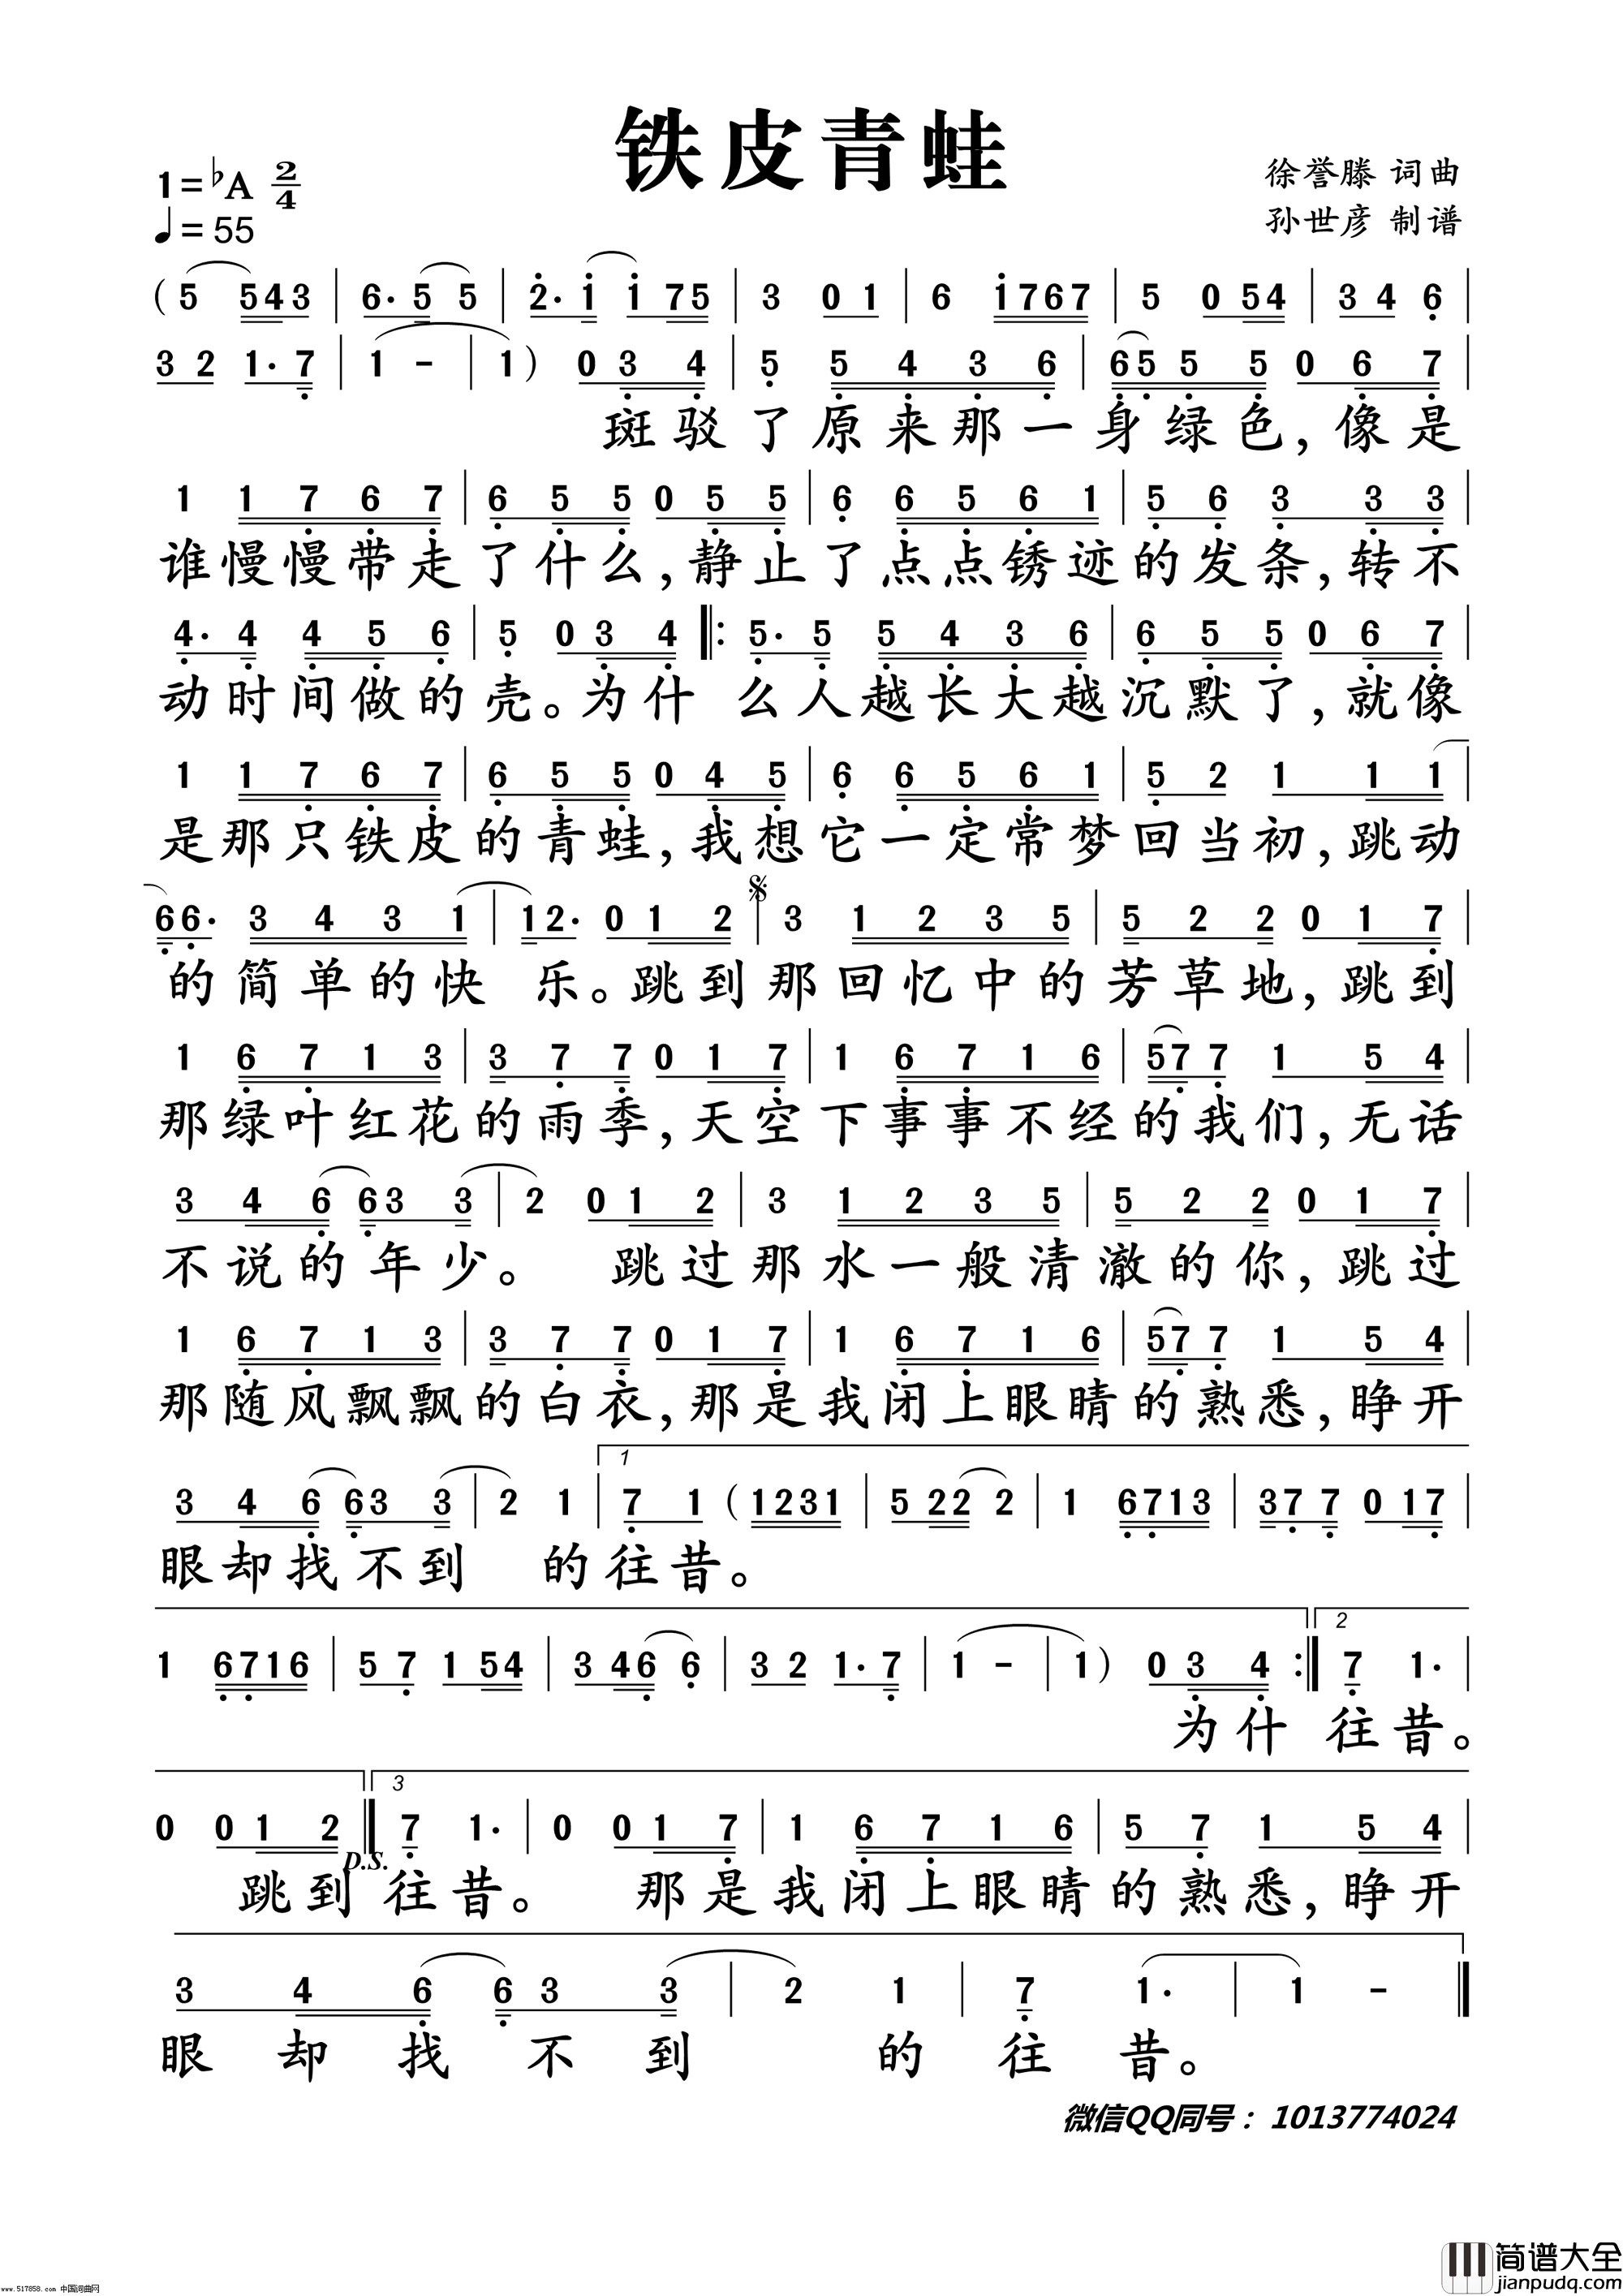 铁皮青蛙
1=♭A 2/4
♩=55
徐誉滕 词曲
孙世彦 制谱
( 5 543 | 6· 5 5 | 2· 1 1 75 | 3 0 1 | 6 1767 | 5 0 54 | 3 4 6 |
3 2 1· 7 | 1 - | 1 ) 0 3 4 | 5 5 4 3 6 | 65 5 5 0 6 7 |
斑驳了原来那一身绿色，像是
1 1 7 6 7 | 6 5 5 0 5 5 | 6 6 5 6 1 | 5 6 3 3 3 |
谁慢慢带走了什么，静止了点点锈迹的发条，转不
4· 4 4 5 6 | 5 0 3 4 |: 5· 5 5 4 3 6 | 6 5 5 0 6 7 |
动时间做的壳。为什 么人越长大越沉默了，就像
1 1 7 6 7 | 6 5 5 0 4 5 | 6 6 5 6 1 | 5 2 1 1 1 |
是那只铁皮的青蛙，我想它一定常梦回当初，跳动
66· 3 4 3 1 | 12· 0 1 2 | 3 1 2 3 5 | 5 2 2 0 1 7 |
的简单的快 乐。跳到那回忆中的芳草地，跳到
1 6 7 1 3 | 3 7 7 0 1 7 | 1 6 7 1 6 | 57 7 1 5 4 |
那绿叶红花的雨季，天空下事事不经的我们，无话
3 4 6 63 3 | 2 0 1 2 | 3 1 2 3 5 | 5 2 2 0 1 7 |
不说的年少。 跳过那水一般清澈的你，跳过
1 6 7 1 3 | 3 7 7 0 1 7 | 1 6 7 1 6 | 57 7 1 5 4 |
那随风飘飘的白衣，那是我闭上眼睛的熟悉，睁开
1
3 4 6 63 3 | 2 1 | 7 1 ( 1231 | 5 22 2 | 1 6713 | 37 7 0 17 |
眼却找不到 的往昔。
2
1 6716 | 5 7 1 54 | 3 46 6 | 3 2 1· 7 | 1 - | 1 ) 0 3 4 :| 7 1· |
为什 往昔。
3
0 0 1 2 || 7 1· | 0 0 1 7 | 1 6 7 1 6 | 5 7 1 5 4 |
D.S.
跳到 往昔。 那是我闭上眼睛的熟悉，睁开
3 4 6 6 3 3 | 2 1 | 7 1· | 1 - ||
眼却找不到 的往昔。
微信QQ同号：1013774024
www.517858.com 中国词曲网
简谱大全
jianpudq.com